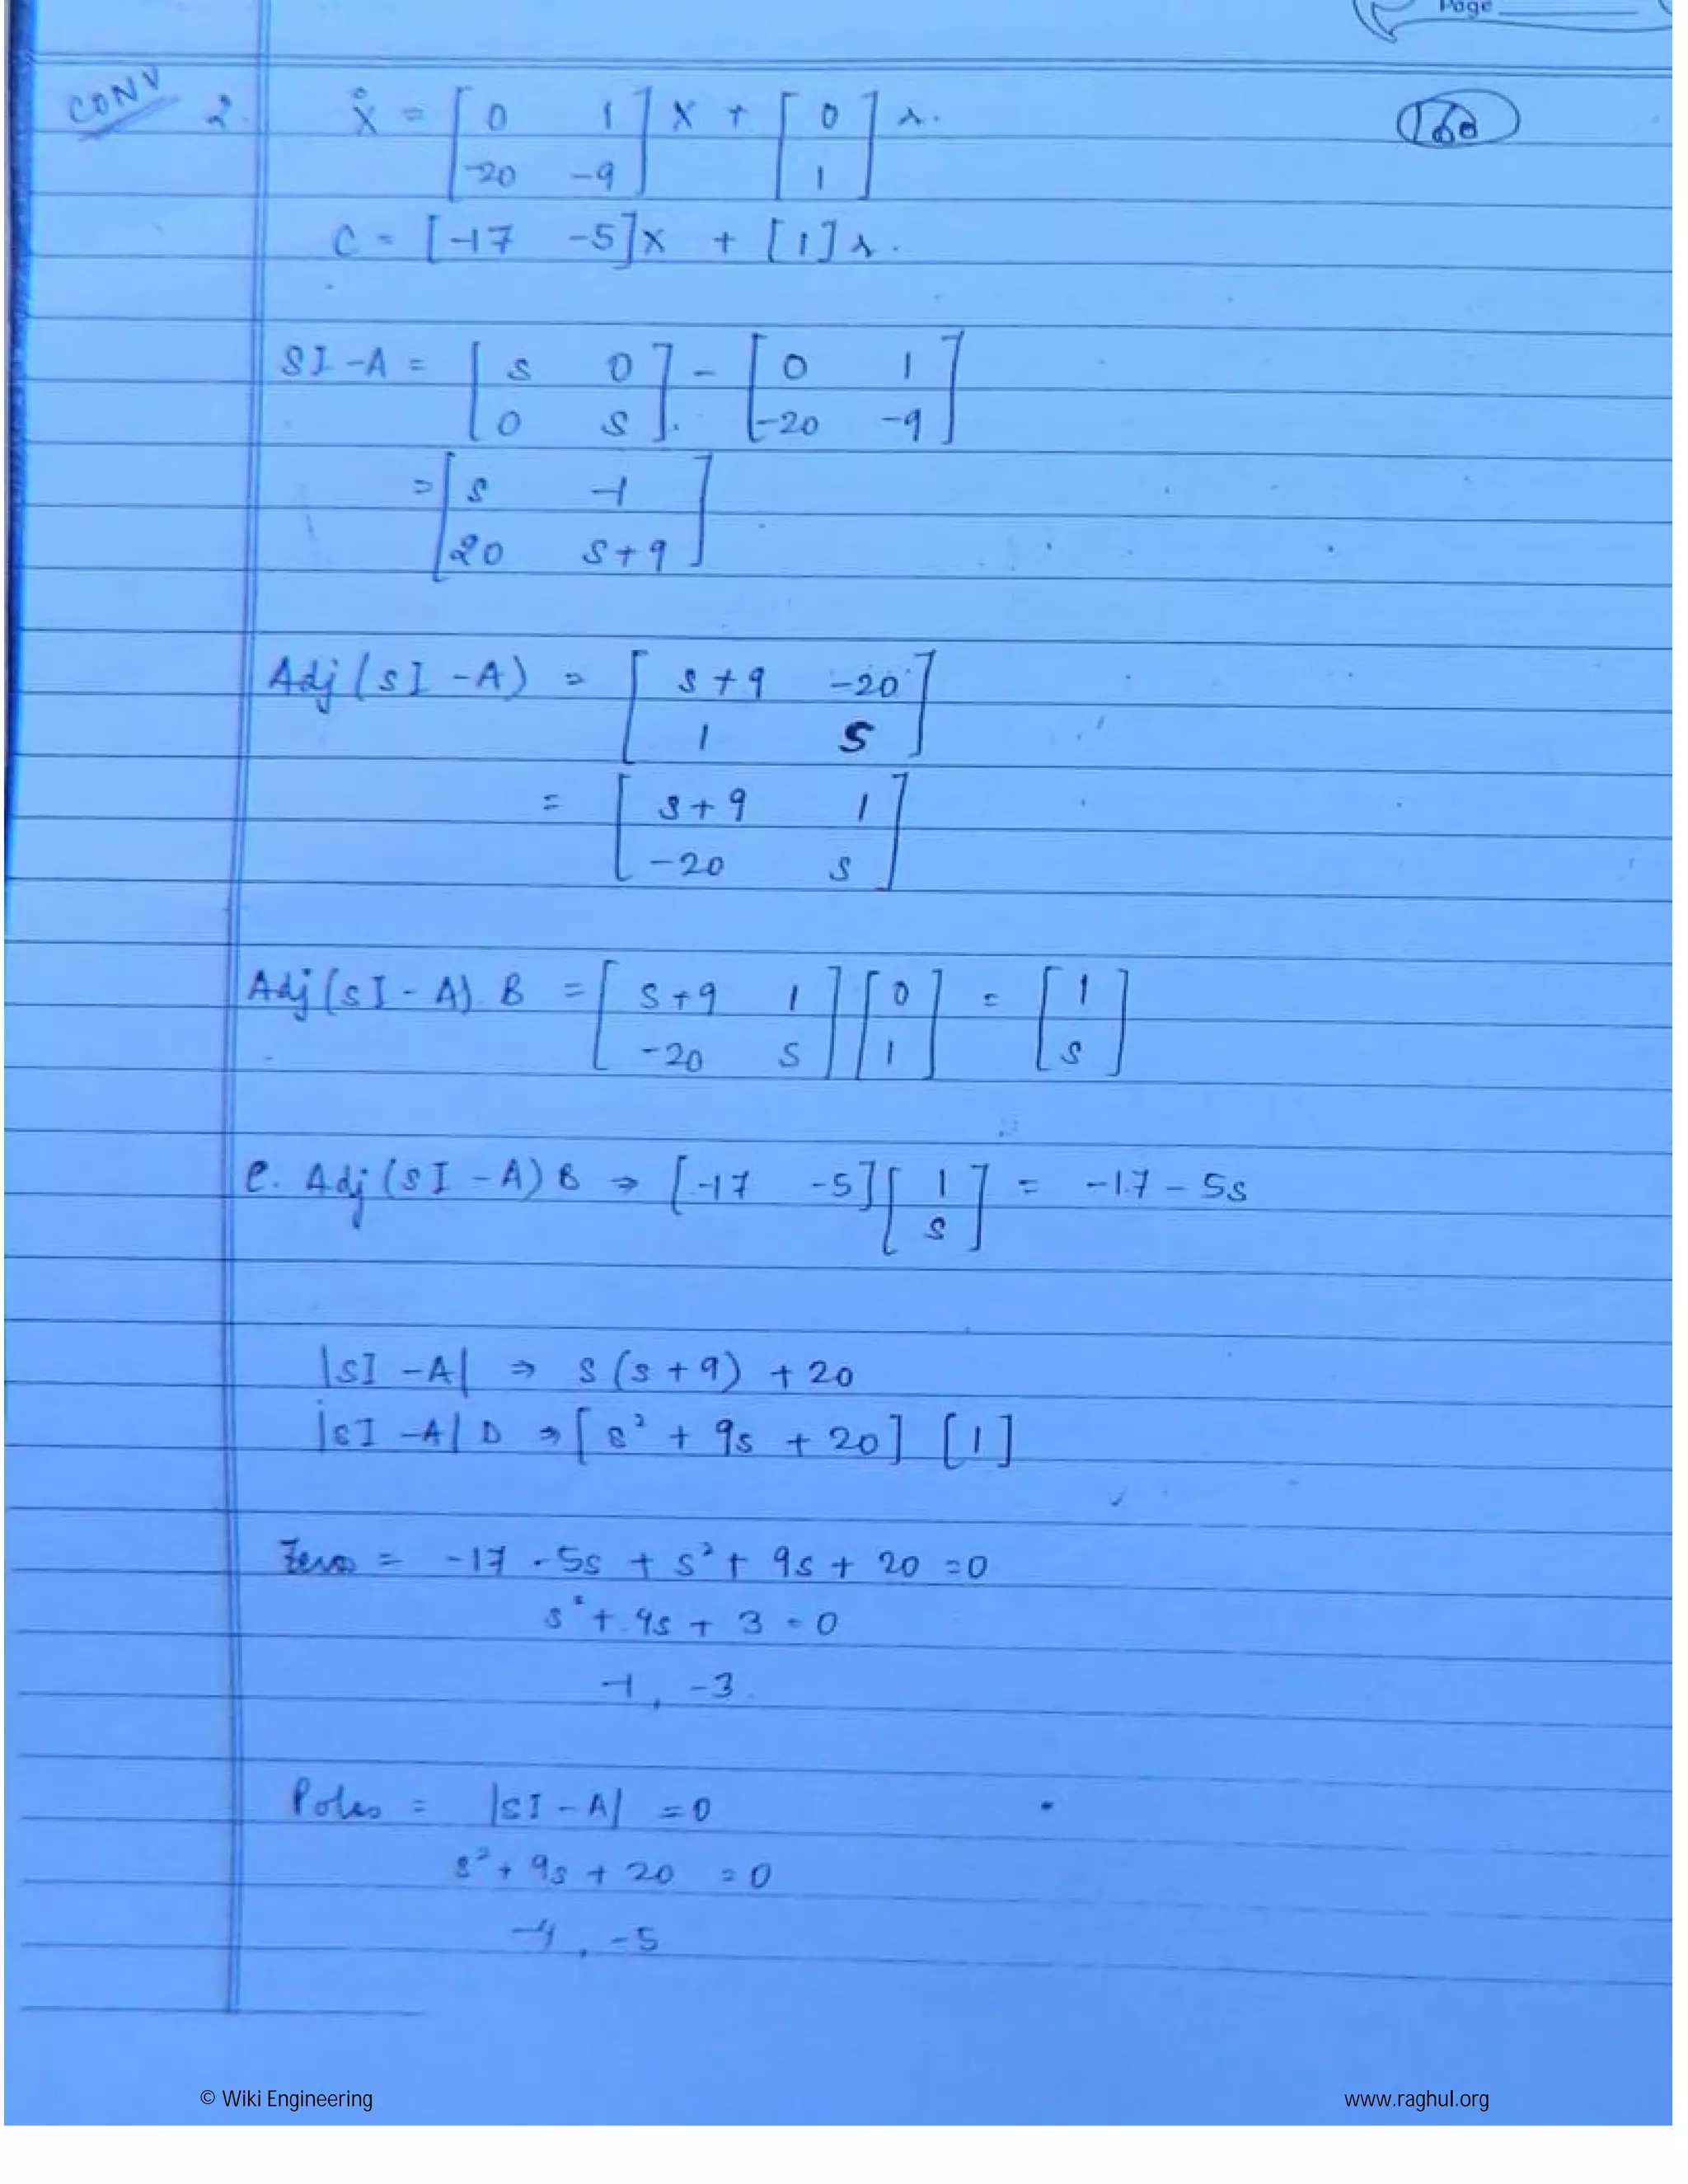 Page
CONV 2. Ẋ = [0 1; -20 -9] X + [0; 1] r.
160
C = [-17 -5]X + [1] r.
SI-A = [s 0; 0 s] - [0 1; -20 -9]
= [s -1; 20 s+9]
Adj(sI-A) = [s+9 -20; 1 s]
= [s+9 1; -20 s]
Adj(sI-A).B = [s+9 1; -20 s] [0; 1] = [1; s]
C. Adj(sI-A)B ⇒ [-17 -5] [1; s] = -17-5s
|sI-A| ⇒ s(s+9)+20
|sI-A| D ⇒ [s²+9s+20] [1]
Zeros = -17-5s+s²+9s+20=0
s²+4s+3=0
-1, -3.
Poles = |sI-A| =0
s²+9s+20 =0
-4, -5
© Wiki Engineering www.raghul.org